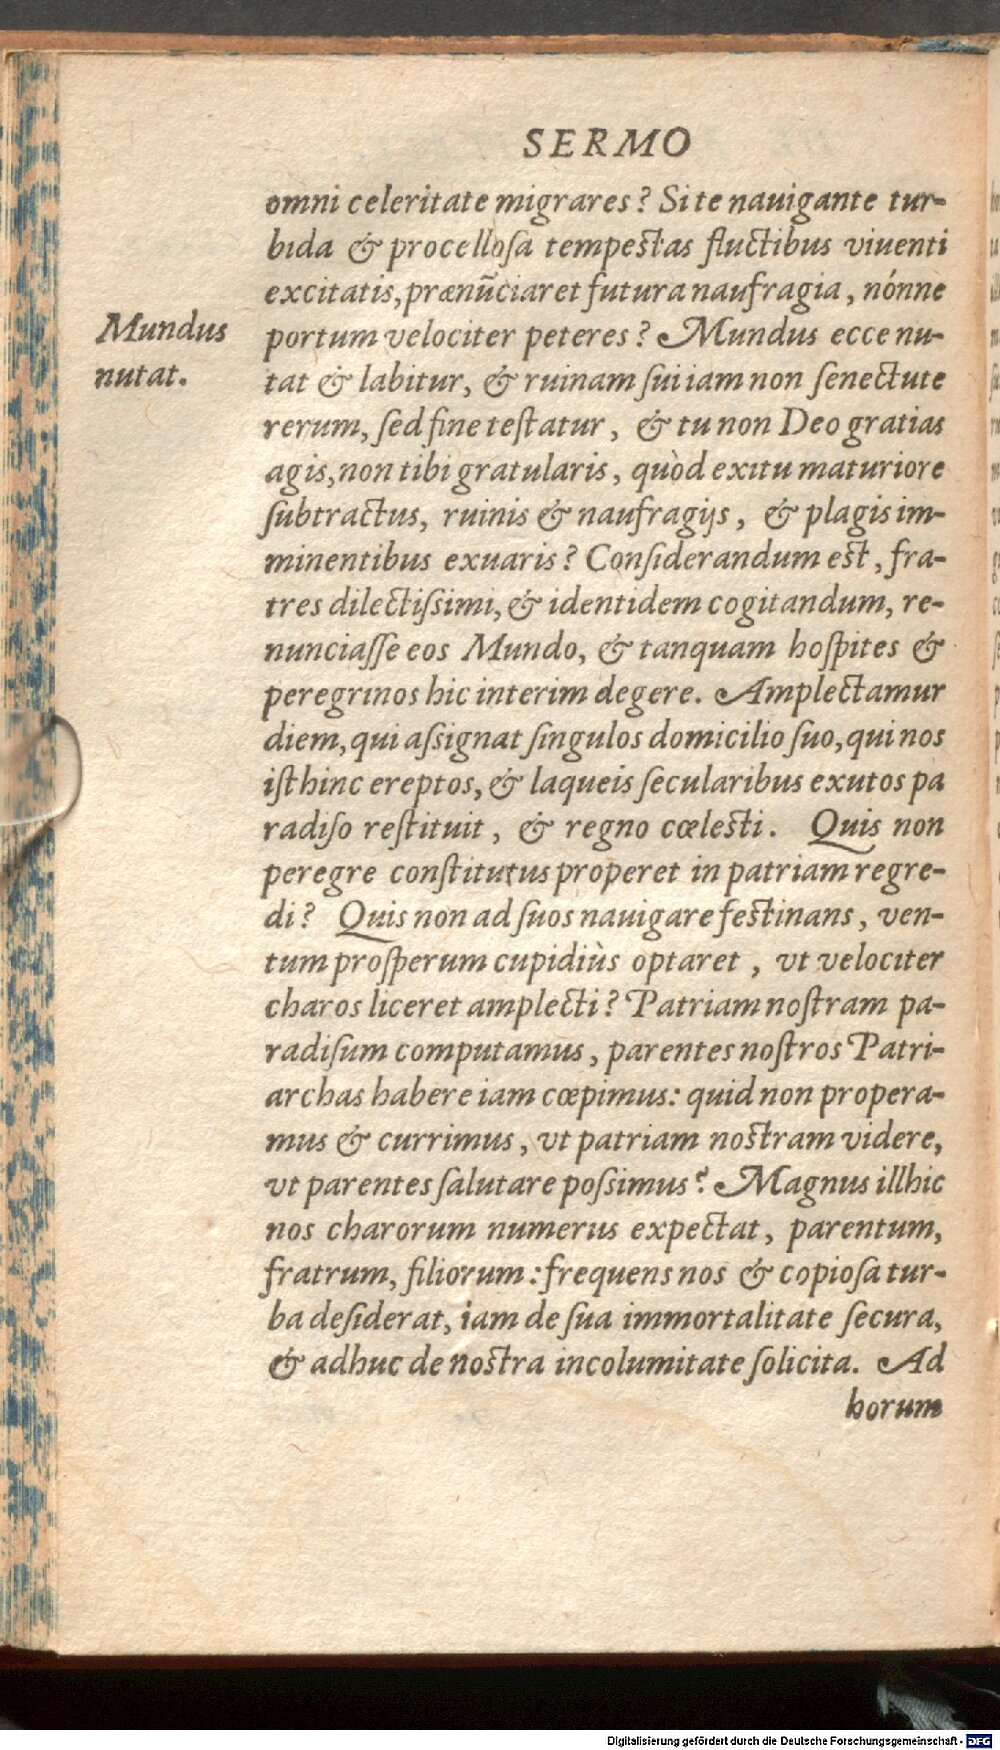 SERMO
omni celeritate migrares? Si te nauigante tur-
bida & procellosa tempestas fluctibus viuenti
excitatis, prænũciaret futura naufragia, nónne
Mundus
nutat.
portum velociter peteres? Mundus ecce nu-
tat & labitur, & ruinam sui iam non senectute
rerum, sed fine testatur, & tu non Deo gratias
agis, non tibi gratularis, quòd exitu maturiore
subtractus, ruinis & naufragijs, & plagis im-
minentibus exuaris? Considerandum est, fra-
tres dilectissimi, & identidem cogitandum, re-
nunciasse eos Mundo, & tanquam hospites &
peregrinos hic interim degere. Amplectamur
diem, qui assignat singulos domicilio suo, qui nos
isthinc ereptos, & laqueis secularibus exutos pa
radiso restituit, & regno cœlesti. Quis non
peregre constitutus properet in patriam regre-
di? Quis non ad suos nauigare festinans, ven-
tum prosperum cupidiùs optaret, vt velociter
charos liceret amplecti? Patriam nostram pa-
radisum computamus, parentes nostros Patri-
archas habere iam cœpimus: quid non propera-
mus & currimus, vt patriam nostram videre,
vt parentes salutare possimus? Magnus illhic
nos charorum numerus expectat, parentum,
fratrum, filiorum: frequens nos & copiosa tur-
ba desiderat, iam de sua immortalitate secura,
& adhuc de nostra incolumitate solicita. Ad
horum
Digitalisierung gefördert durch die Deutsche Forschungsgemeinschaft - DFG